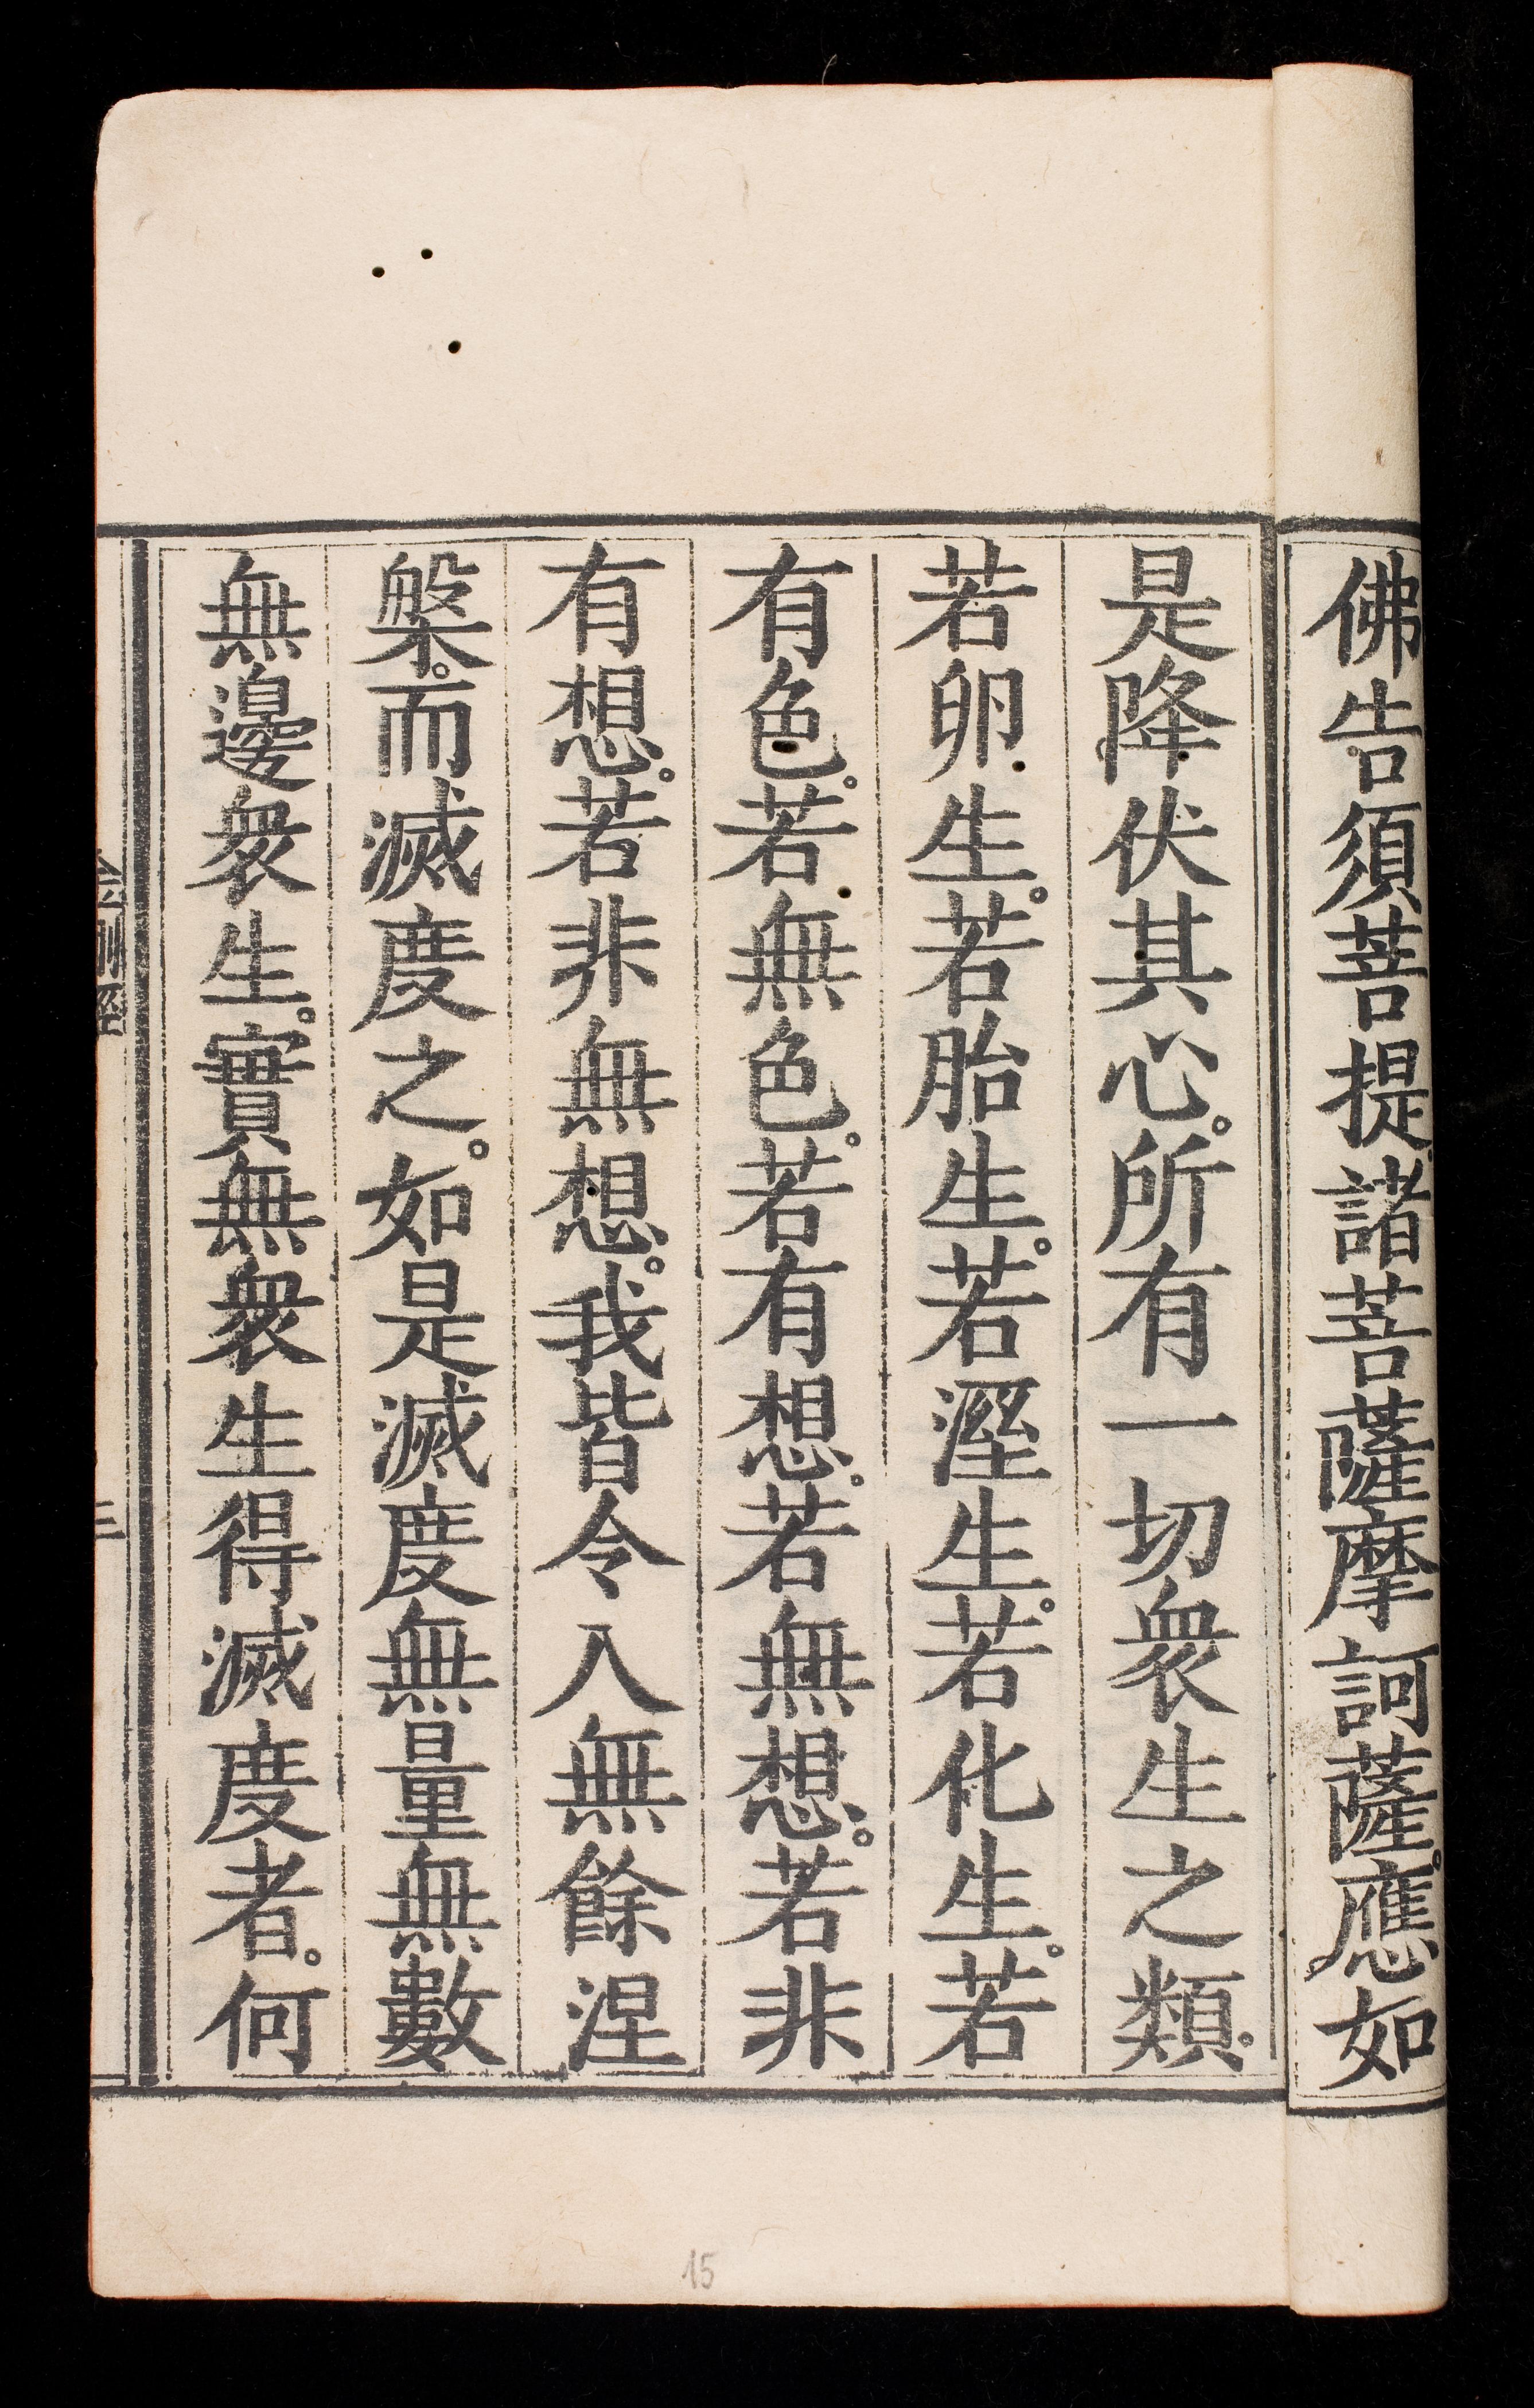 佛告須菩提。諸菩薩摩訶薩。應如
是降伏其心。所有一切衆生之類。
若卵生。若胎生。若溼生。若化生。若
有色。若無色。若有想。若無想。若非
有想。若非無想。我皆令入無餘涅
槃。而滅度之。如是滅度無量無數
無邊衆生。實無衆生得滅度者。何
金剛經
三
15